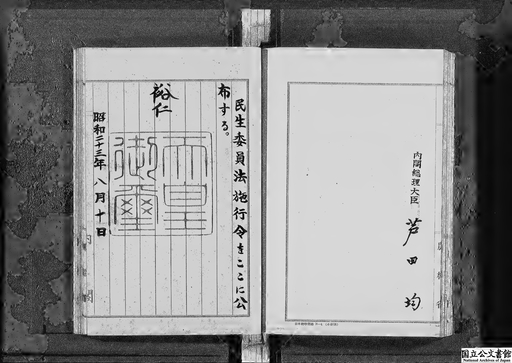 民生委員法施行令をここに公
布する。
裕仁
天皇
御璽
昭和二十三年八月十日
内閣
内閣総理大臣 芦田均
国立公文書館
National Archives of Japan